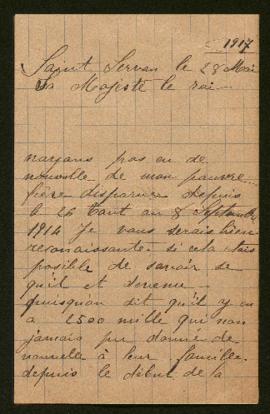 1917
Saint Servan le 28 Mai
Sa Majesté le roi
nayans pas eu de
nouvelle de mon pauvre
frère disparue depuis
le 26 Out au 8 Septembre
1914 Je vous serais bien
reconaissante si cela étais
posible de savoir se
quil et devenu
puisquon dit qu'il y en
a 2500 mille qui non
jamais pu donné de
nouvelle à leur famille
depuis le début de la